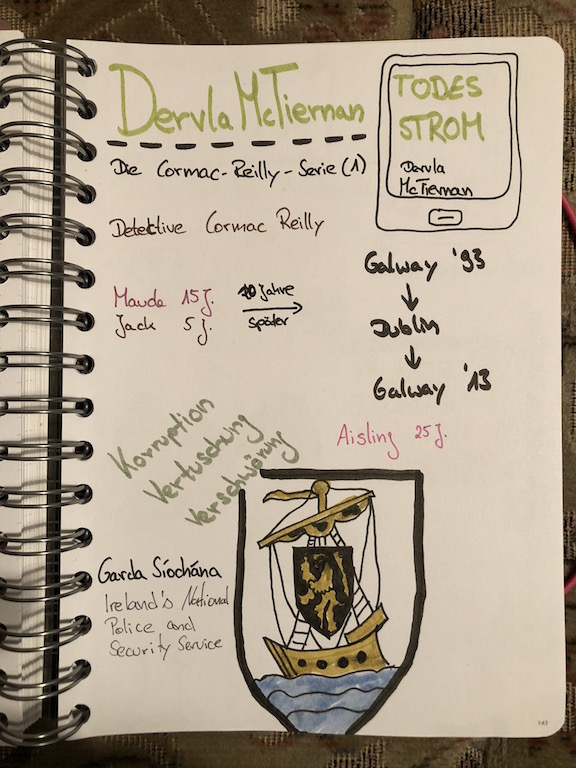 Dervla McTiernan
Die Cormac-Reilly-Serie (1)
TODES
STROM
Dervla
McTiernan
Detektive Cormac Reilly
Maude 15 J.
Jack 5 J.
Jahre
später
Galway '93
Dublin
Galway '13
Aisling 25 J.
Korruption
Vertuschung
Verschwörung
Garda Síochána
Ireland's National
Police and
Security Service
145